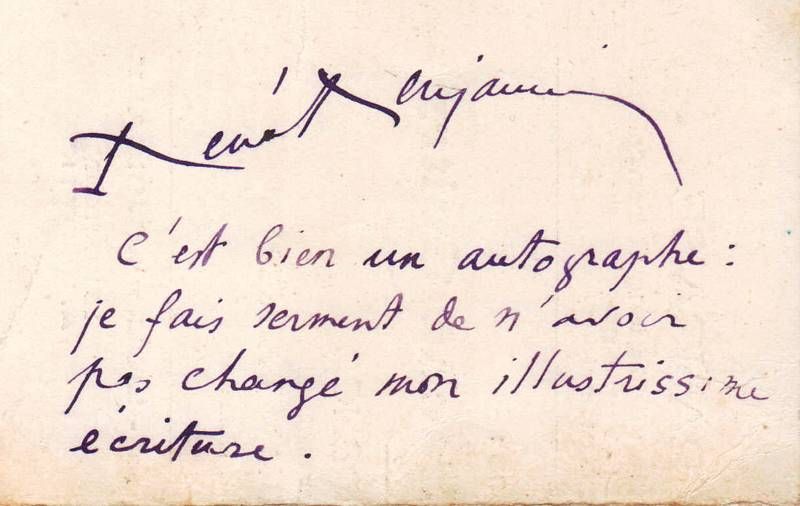 René Benjamin
C'est bien un autographe :
je fais serment de n'avoir
pas changé mon illustrissime
écriture.